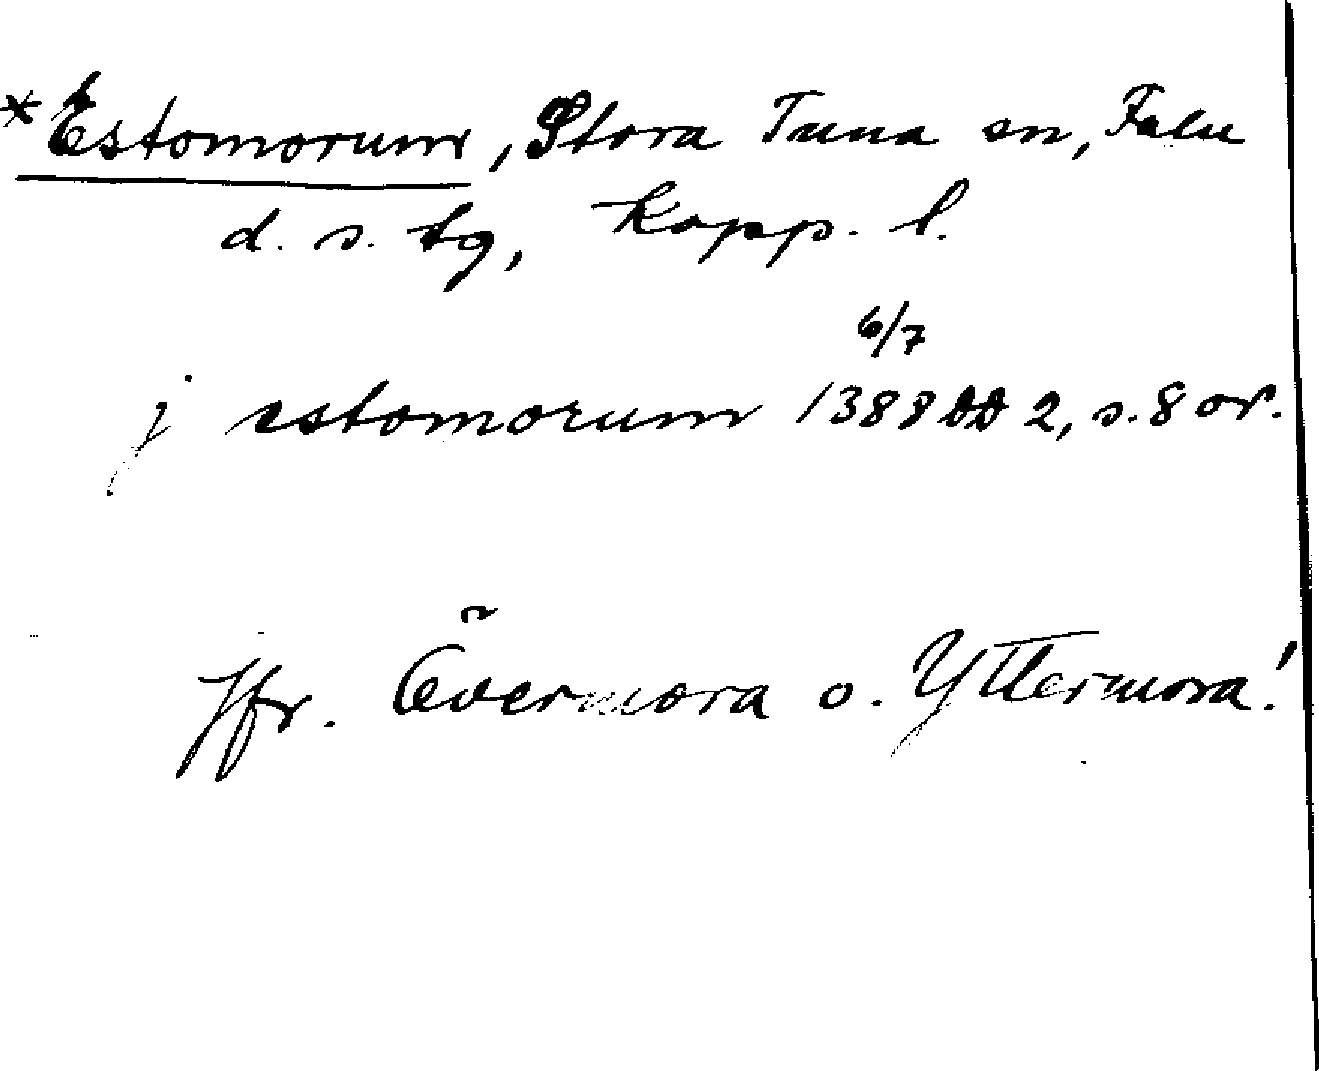 *Estomorum, Stora Tuna sn, Falu
d. s. tg, Kopp. l.
6/7
j estomorum 1388 DD 2, s. 8 or.
Jfr. Övermora o. Yttermora!